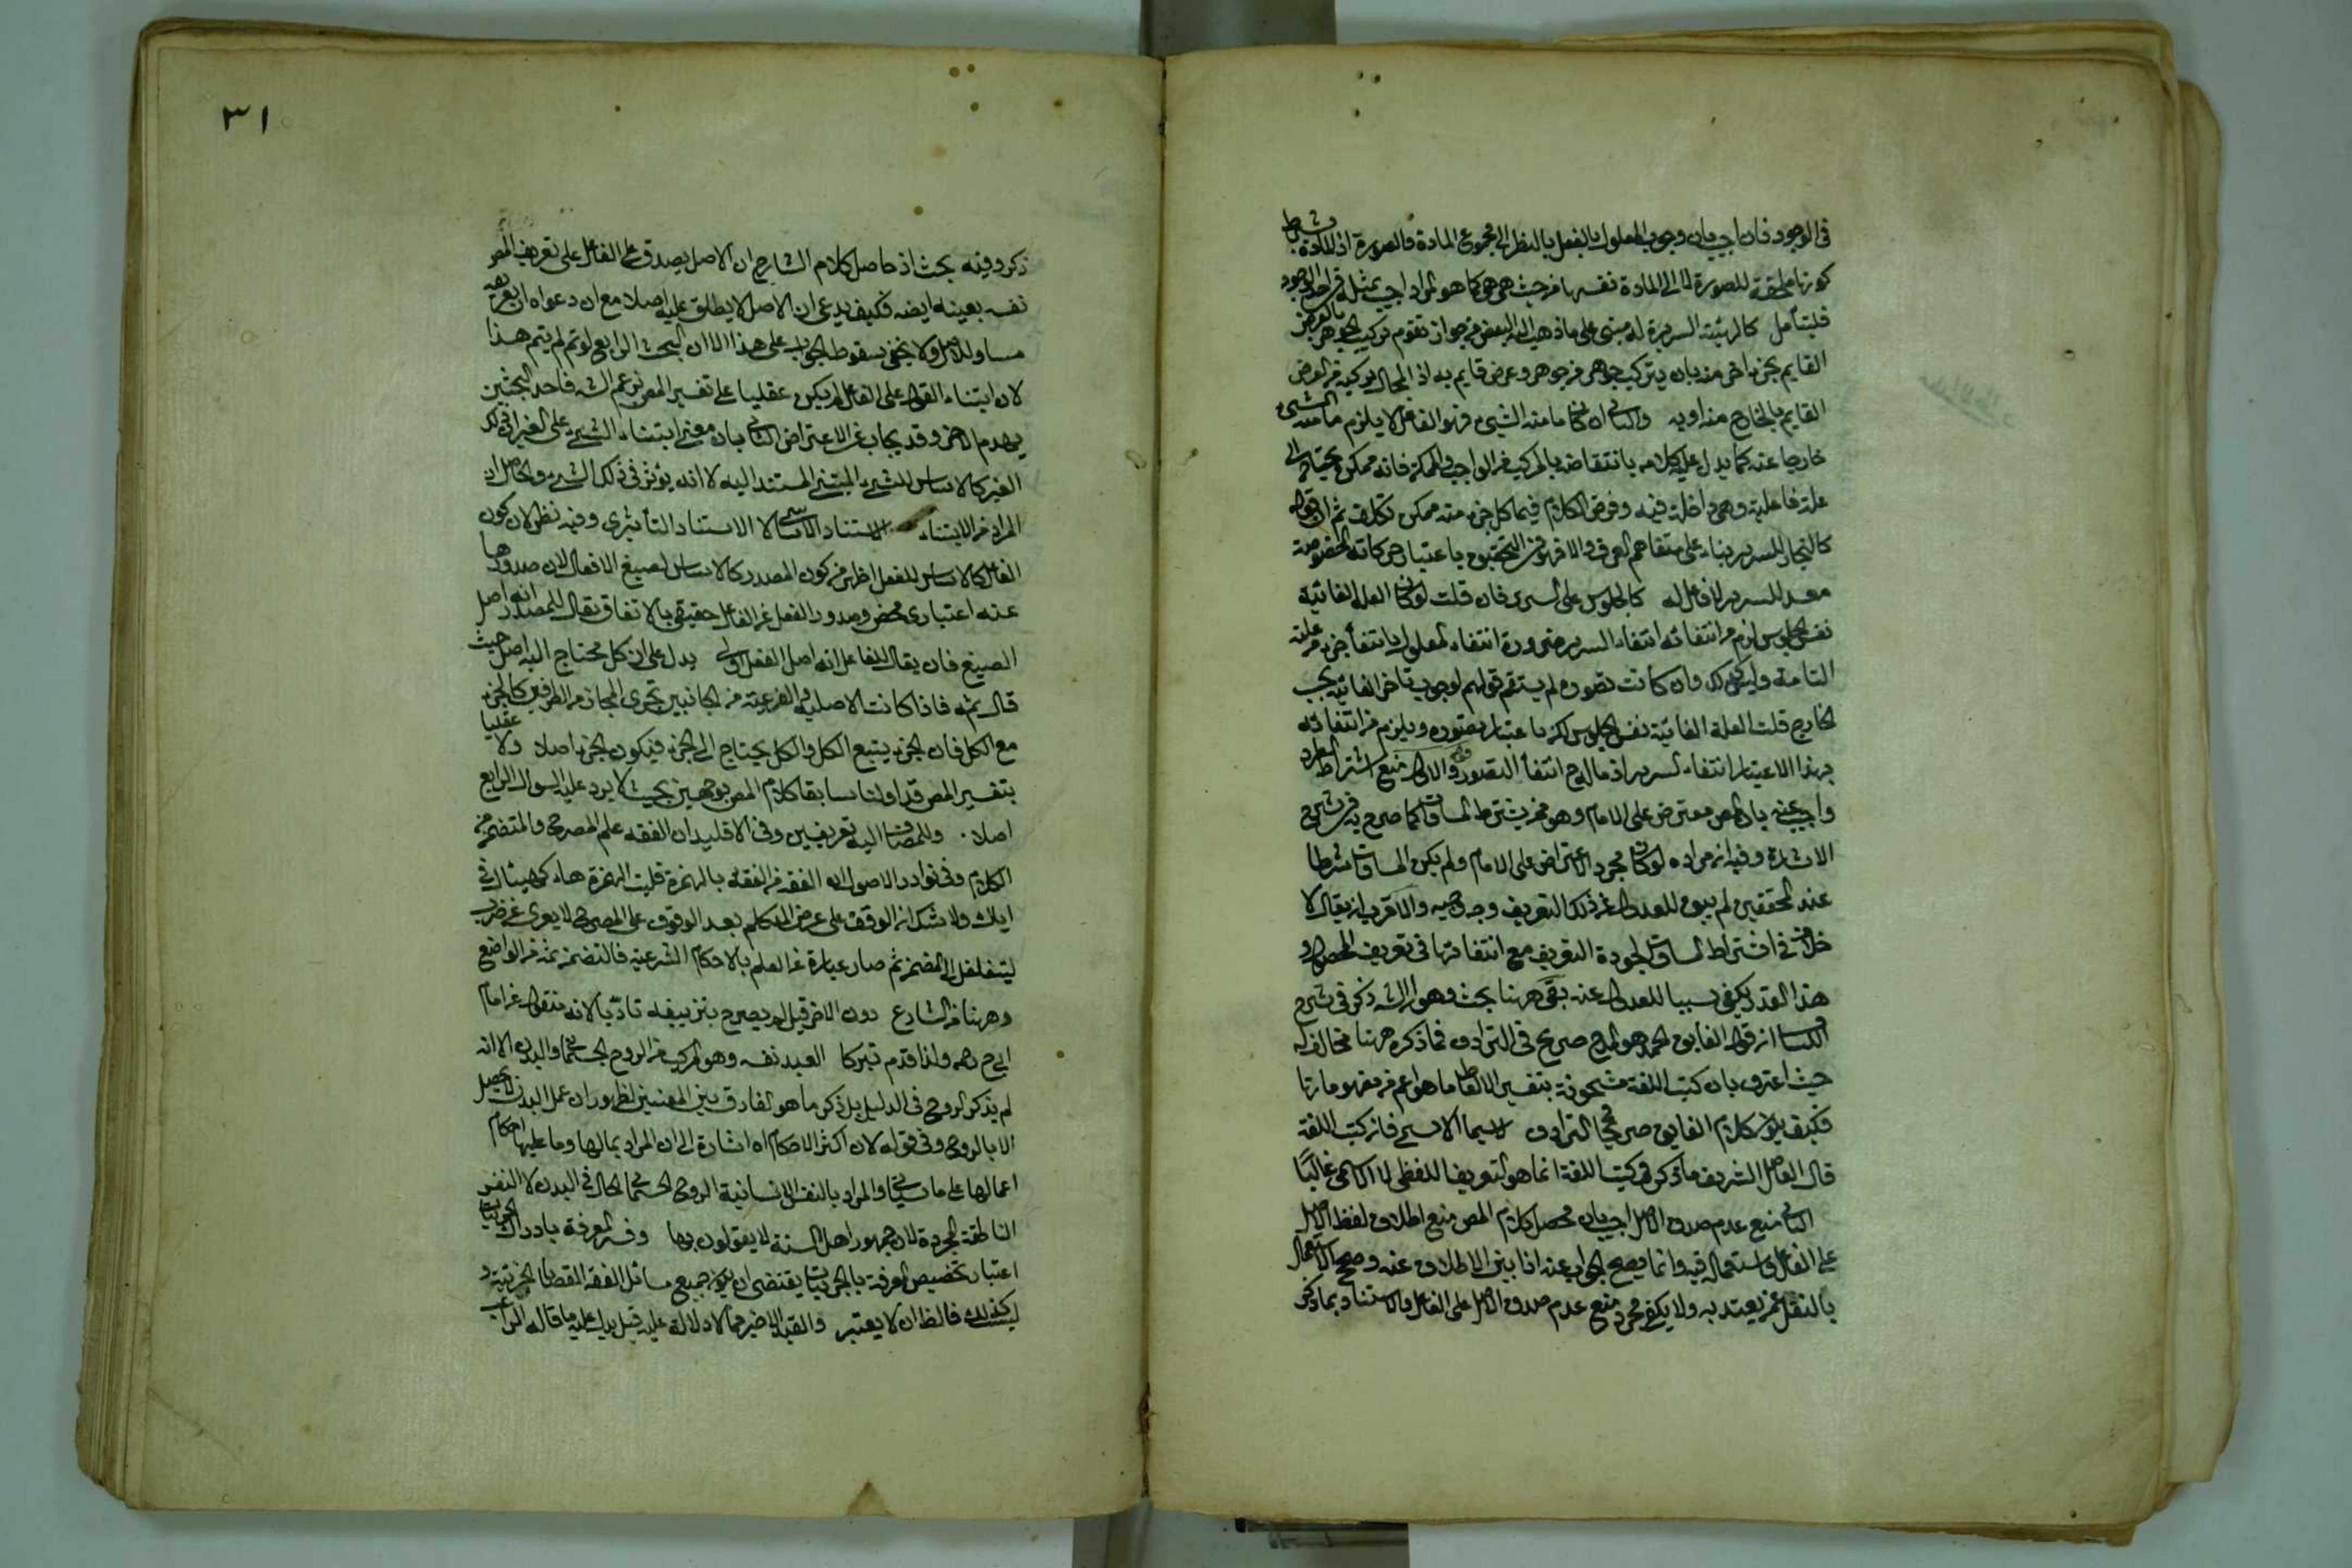 في الوجود فان اجيب بان وجوب المعلول بالفعل بالنظر الى مجموع المادة والصورة اذ للمادة بشرط
كونها ملحقة للصورة لا الى المادة نفسها من حيث هي هي كما هو المراد اجيب بمثله في الوجود
فليتأمل كالهيئة السريرية له مبنى على ما ذهب اليه البعض من جواز تقوم تركيب الجوهر بالعرض
القايم بجزء اخر منه بان يتركب جوهر من جوهر وعرض قايم به اذ المحال تركبه من العرض
القايم بالخارج منه اوبه والثاني ان كان ما منه الشيء فهو الفاعل لا يلزم ما منه الشيء
خارجا عنه كما يدل عليه كلامه بانتقاضه بالمركب من الواجب والممكن فانه ممكن يحتاج الى
علة فاعلية وهي داخلة فيه وفرض الكلام فيما كل جزء منه ممكن تكلف ثم ان قوله
كالنجار للسرير بناء على متفاهم العرف والا فهو في التحقيق باعتبار حركاته المخصوصة
معد للسرير لا فاعل له كالجلوس على السرير فان قلت لو كان العلة الغائية
نفس الجلوس لزم من انتفائه انتفاء السرير ضرورة انتفاء المعلول بانتفاء جزء من علته
التامة وليس كذلك وان كانت تصوره لم يستقم قولهم لوجوب تأخر الغائية بحسب
الخارج قلت العلة الغائية نفس الجلوس لكن باعتبار تصوره ويلزم من انتفائه
بهذا الاعتبار انتفاء السرير اذ مآله الى انتفاء التصور والاولى منع اشتراط الطرد
واجيب عنه بان المص معترض على الامام وهو ممن يشترط المساواة كما صرح به في شرح
الاشارة وفيه ان مراده لو كان مجرد الاعتراض على الامام ولم يكن المساواة شرطا
عند المحققين لم يبق للعدول عن ذلك التعريف وجه وجيه والاقرب ان يقال لا
خلاف في اشتراط المساواة لجودة التعريف مع انتفائها في تعريف المحصول و
هذا القدر يكفي سببا للعدول عنه بقى ههنا بحث وهو ان الشه ذكر في شرح
الكشاف ان قول الفايق الحمد هو المدح صريح في الترادف فما ذكره ههنا مخالف له
حيث اعترف بان كتب اللغة مشحونة بتفسير الالفاظ ما هو اعم من مفهوماتها
فكيف يكون كلام الفايق صريحا في الترادف لا سيما الاسمي فان كتب اللغة
قال الفاضل الشريف ما ذكر في كتب اللغة انما هو التعريف اللفظي لا الاسمي غالبا
الثاني منع عدم صدق الاصل اجيب بان محصل كلام المص منع اطلاق لفظ الاصل
على الفاعل واستعماله فيه وانما يصح الجواب عنه اذا بين الاطلاق عنه وصحح الاستعمال
بالنقل عمن يعتد به ولا يكفي مجرد منع عدم صدق الاصل على الفاعل والاستناد بما ذكر
٣١
ذكر وفيه بحث اذ حاصل كلام الشارح ان الاصل يصدق على الفاعل على تعريف المص
نفسه بعينه ايضه فكيف يدعي ان الاصل لا يطلق عليه اصلا مع ان دعواه ان تعريفه
مساو للاصل ولا يخفى سقوط الجواب على هذا الا ان البحث الرابع لو تم لم يتم هذا
لان ابتناء القول على الفاعل لم يكن عقليا على تفسير المص بزعم الشه فاحد البحثين
يهدم الاخر وقد يجاب عن الاعتراض الثاني بان معنى ابتناء الشيء على الغير ان ذلك
الغير كالاساس للشيء المبتنى المستند اليه لا انه يؤثر في ذلك الشيء والحاصل ان
المراد من الابتناء الاستناد الاساسي لا الاستناد التأثيري وفيه نظر لان كون
الفاعل كالاساس للفعل اظهر من كون المصدر كالاساس لصيغ الافعال لان صدورها
عنه اعتباري محض وصدور الفعل عن الفاعل حقيقي بالاتفاق يقال للمصدر انه اصل
الصيغ فان يقال للفاعل انه اصل الفعل اولى يدل على ان كل محتاج اليه اصل حيث
قال ثمه فاذا كانت الاصلية والفرعية من الجانبين تجري المجاز من الطرفين كالجزء
مع الكل فان الجزء يتبع الكل والكل يحتاج الى الجزء فيكون الجزء اصلا ولا عقليا
بتفسير المص قد اولنا سابقا كلام المص بوجهين بحيث لا يرد عليه السوال الرابع
اصلا . وللمضاف اليه تعريفين وفي الاقليد ان الفقه علم المصرح والمتضمن من
الكلام وفي نوادر الاصول ان الفقه من الفقئ بالهمزة قلبت الهمزة هاء كهيئات في
اياك ولا شك ان الوقوف على غرض المتكلم بعد الوقوف على المصرح لا يعرى عن ضرب
ليتغلغل الى المضمر ثم صار عبارة عن العلم بالاحكام الشرعية فالتضمن ثمه من الواضع
وههنا من الشارع دون الاخر قيل لم يصرح بتزييفه تأدبا لانه منقول عن امام
ابي ح رحمه ولذا قدم تبركا العبد نفسه وهو المركب من الروح الجسماني والبدن الا انه
لم يذكر الروح في الدليل بل ذكر ما هو الفارق بين المعنيين لظهور ان عمل البدن لا يحصل
الا بالروح وفي قوله لان اكثر الاحكام اه اشارة الى ان المراد بمالها وما عليها احكام
اعمالها على ما سيأتي والمراد بالنفس الانسانية الروح الجسماني الحال في البدن لا النفس
الناطقة المجردة لان جمهور اهل السنة لا يقولون بها وفسر المعرفة بادراك الجزئيات
اعتبار تخصيص المعرفة بالجزئيات يقتضي ان يكون جميع مسائل الفقه القضايا الجزئية و
ليس كذلك فالظ ان لا يعتبر والقيد الاخير مما لا دلالة عليه قيل يدل عليه ما قاله الراغب